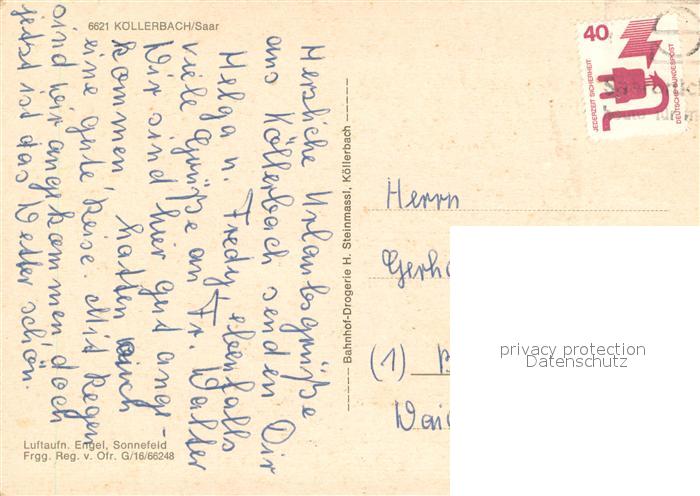 6621 KÖLLERBACH/Saar
Herzliche Urlaubsgrüße
aus Köllerbach senden Dir
Helga u. Fredy, ebenfalls
viele Grüße an Fr. Walter
Wir sind hier gut ange-
kommen, hatten auch
eine gute Reise. Mit Regen
sind wir angekommen doch
jetzt ist das Wetter schön.
Luftaufn. Engel, Sonnefeld
Frgg. Reg. v. Ofr. G/16/66248
Bahnhof-Drogerie H. Steinmassl, Köllerbach
40
JEDERZEIT SICHERHEIT
DEUTSCHE BUNDESPOST
Herrn
Gerha
(1)
Wai
privacy protection
Datenschutz